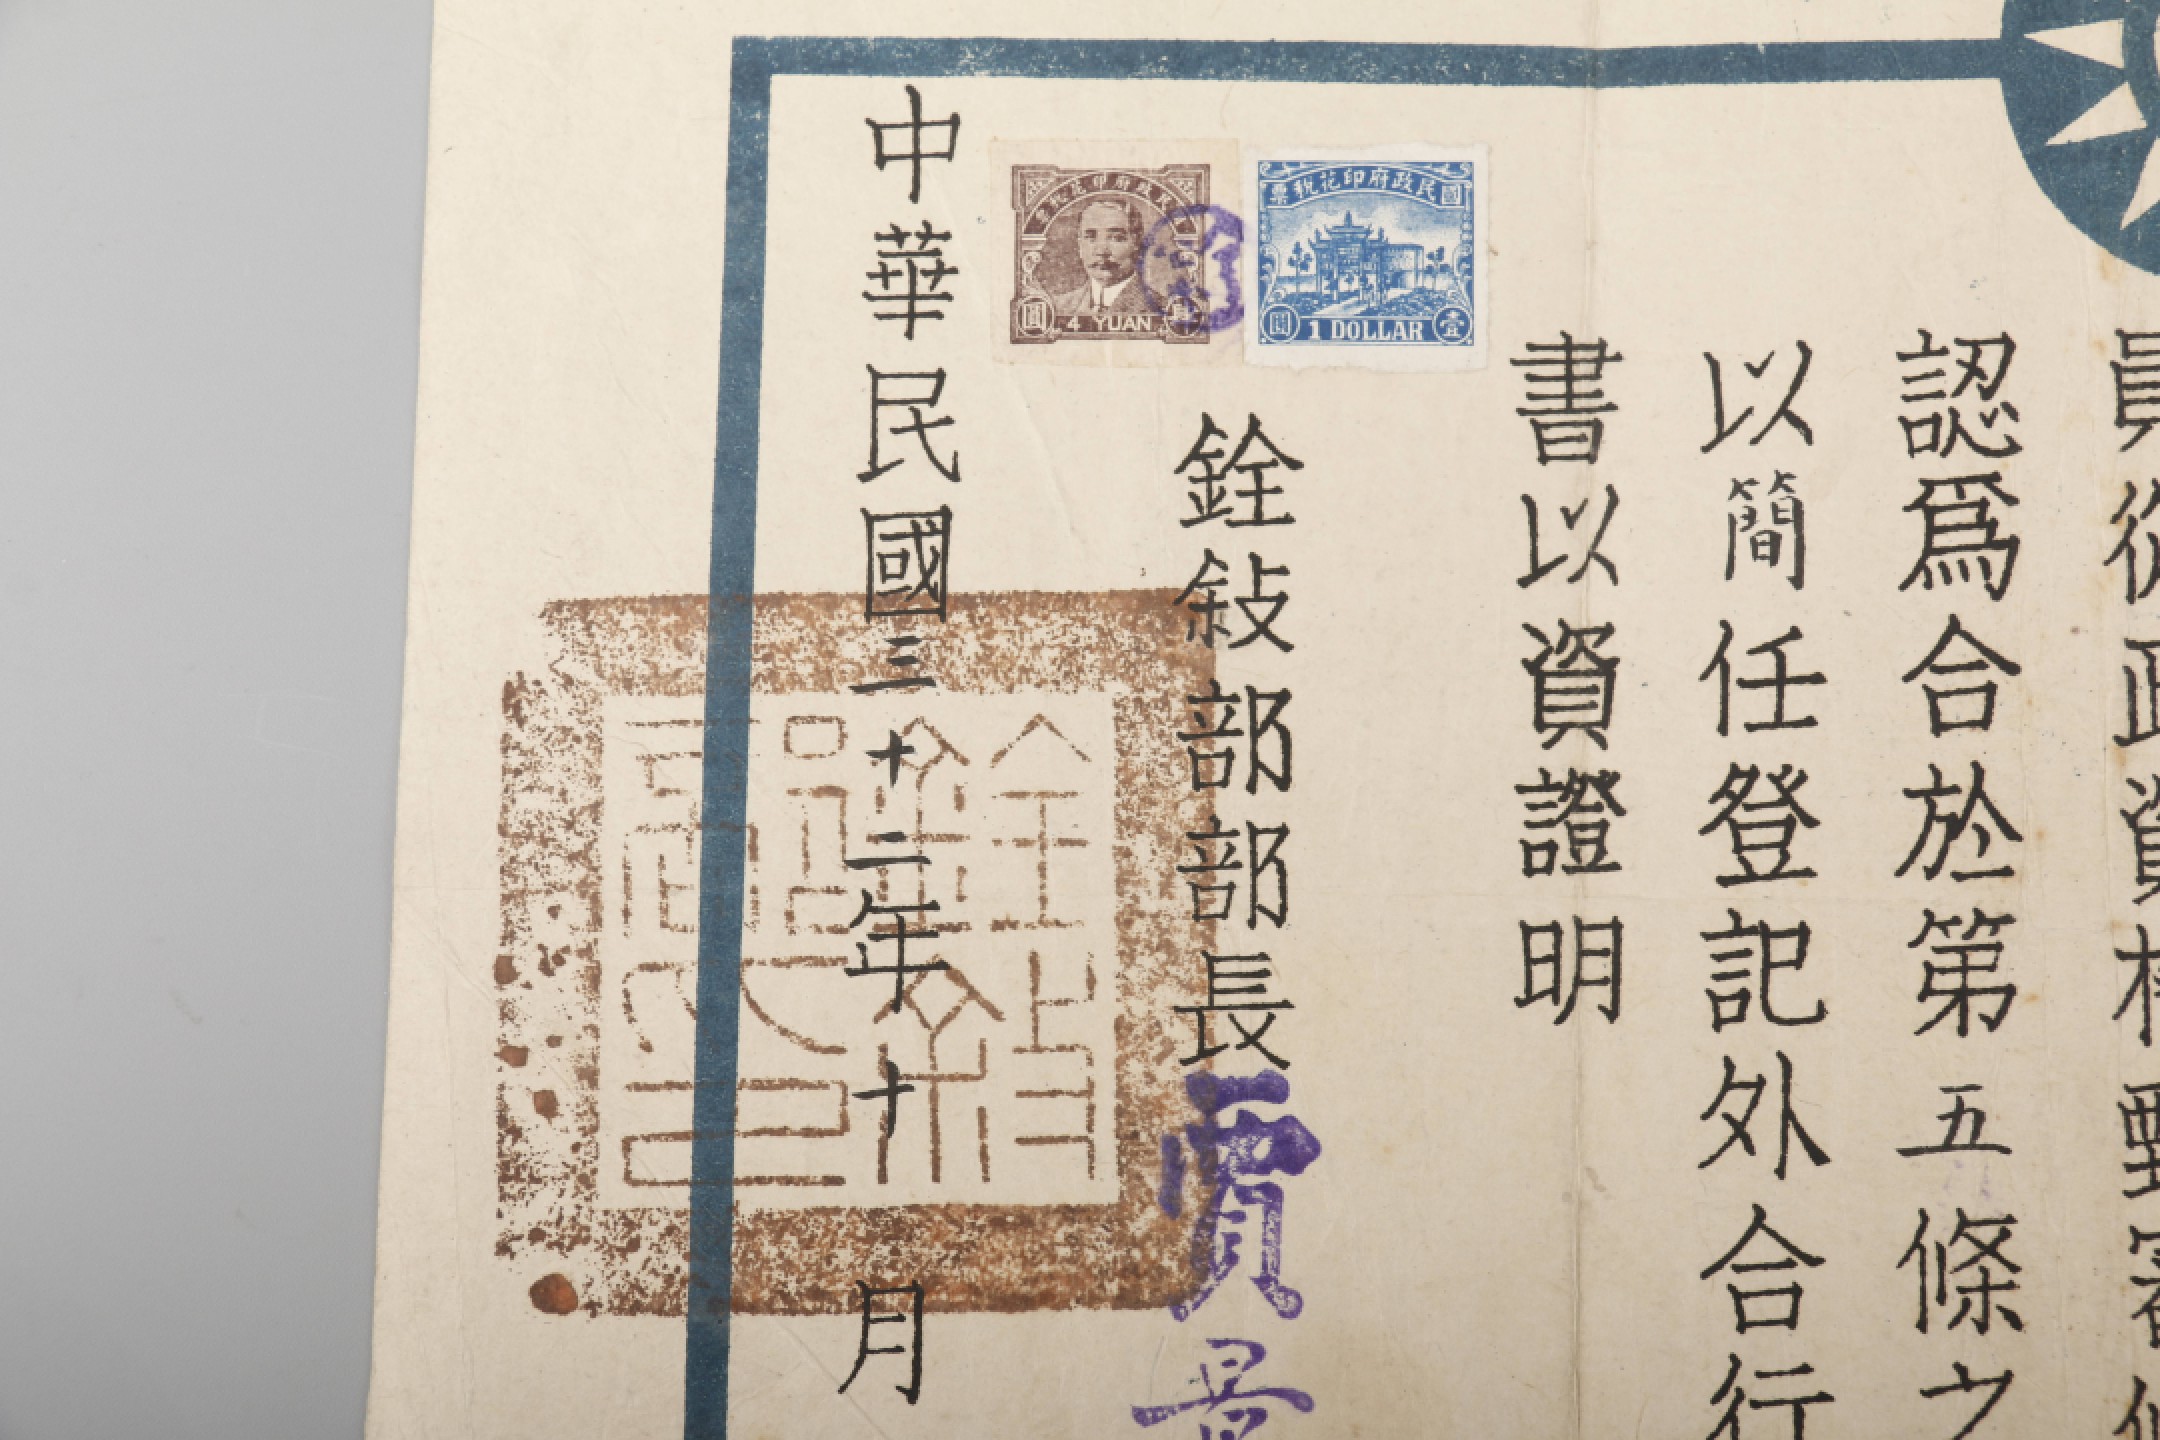 員從政資
認爲合於第五條之
以簡任登記外合行
書以資證明
國民政府印花稅票
圓 1 DOLLAR 壹
國民政府印花稅票
圓 4 YUAN
銓敍部部長賈景
中華民國三十二年十月